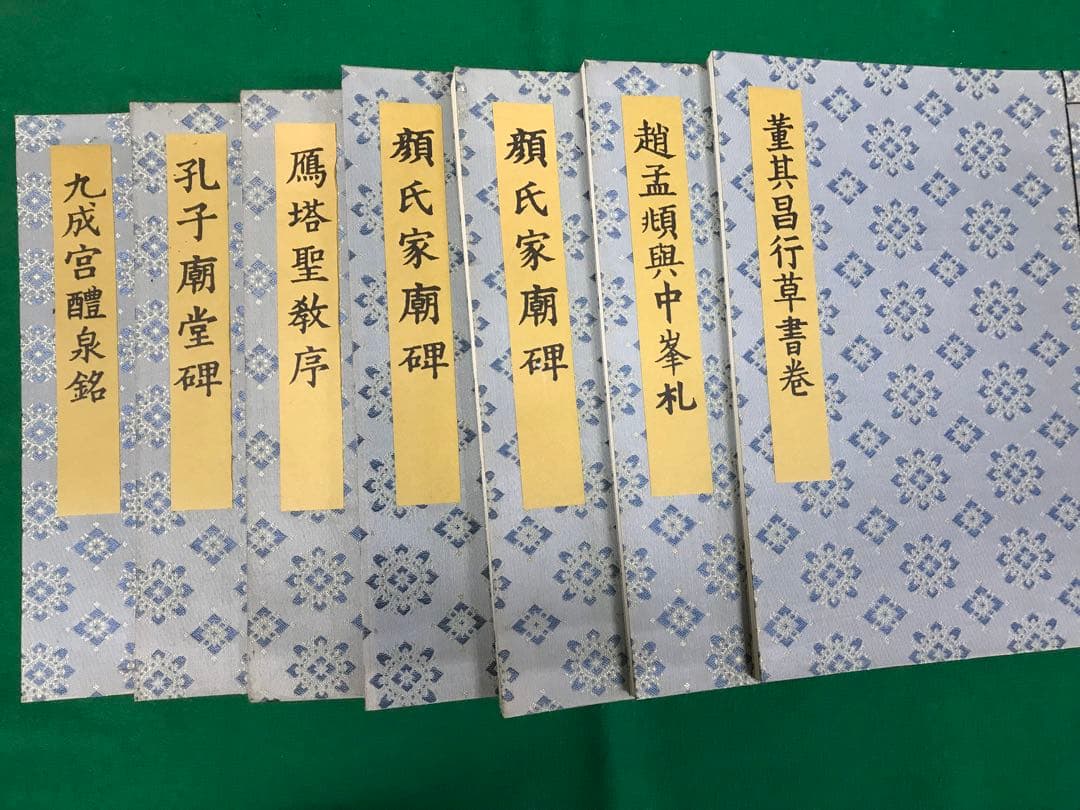 九成宮醴泉銘
孔子廟堂碑
鴈塔聖教序
顏氏家廟碑
顏氏家廟碑
趙孟頫與中峯札
董其昌行草書卷